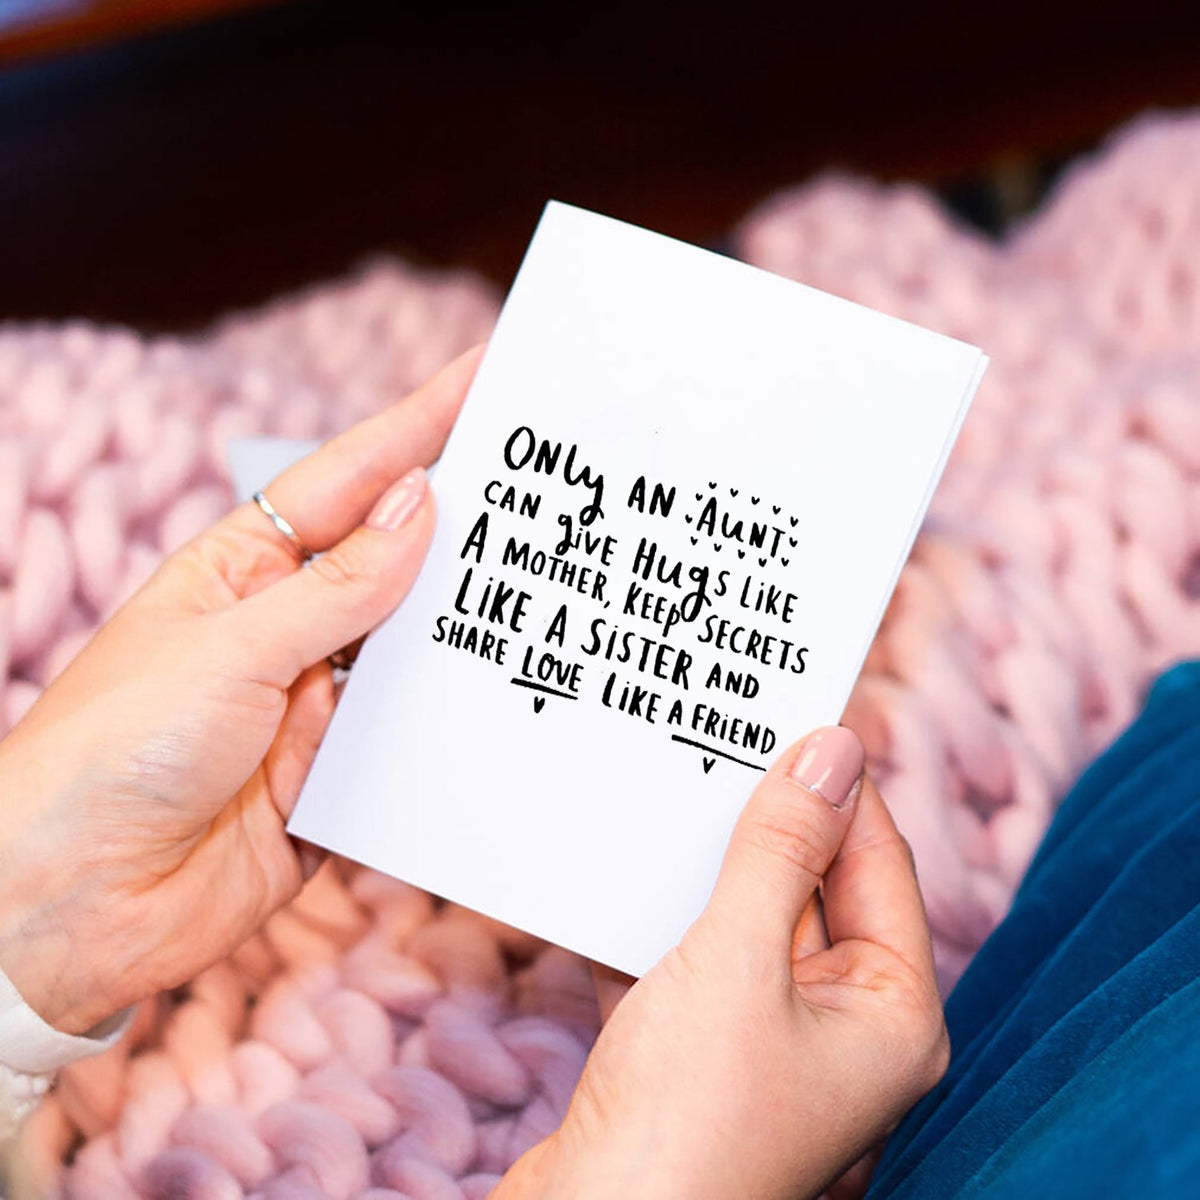 ONLY AN AUNT
CAN giVE HugS LiKE
A MOTHER, KEEP SECRETS
LiKE A SiSTER AND
SHARE LOVE LiKE A FRiEND